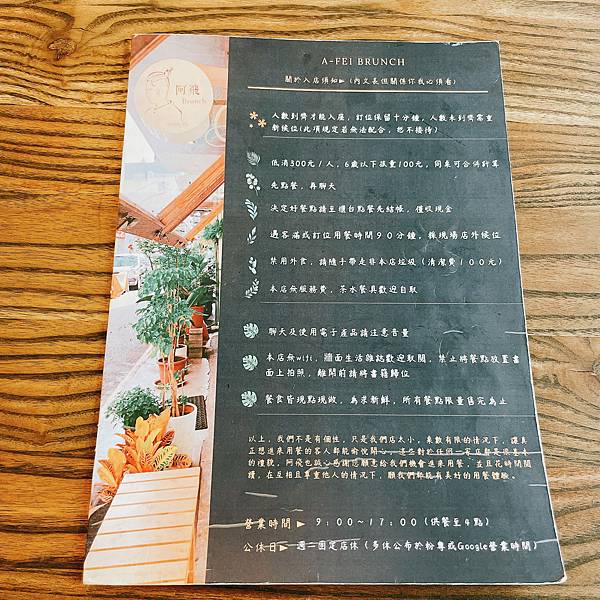 阿飛
Brunch
A-FEI BRUNCH
關於入店須知►(內文長但關係你我必須看)
人數到齊才能入座，訂位保留十分鐘，人數未到齊需重
新候位(此項規定若無法配合，恕不接待)
低消300元/人，6歲以下孩童100元，同桌可合併計算
先點餐，再聊天
決定好餐點請至櫃台點餐先結帳，僅收現金
遇客滿或訂位用餐時間90分鐘，採現場店外候位
禁用外食，請隨手帶走非本店垃圾（清潔費100元）
本店無服務費，茶水餐具歡迎自取
聊天及使用電子產品請注意音量
本店無wifi，牆面生活雜誌歡迎取閱，禁止將餐點放置書
面上拍照，離開前請將書籍歸位
餐食皆現點現做，為求新鮮，所有餐點限量售完為止
以上，我們不是有個性，只是我們店太小，桌數有限的情況下，讓真
正想進來用餐的客人都能愉悅開心，這些對於任何一家店都是很基本
的禮貌，阿飛也誠心感謝您願意給我們機會進來用餐，並且花時間閱
讀，在互相且尊重他人的情況下，願我們都能有美好的用餐體驗。
營業時間► 9：00~17：00（供餐至4點）
公休日► 週二固定店休（多休公布於粉專或Google營業時間）